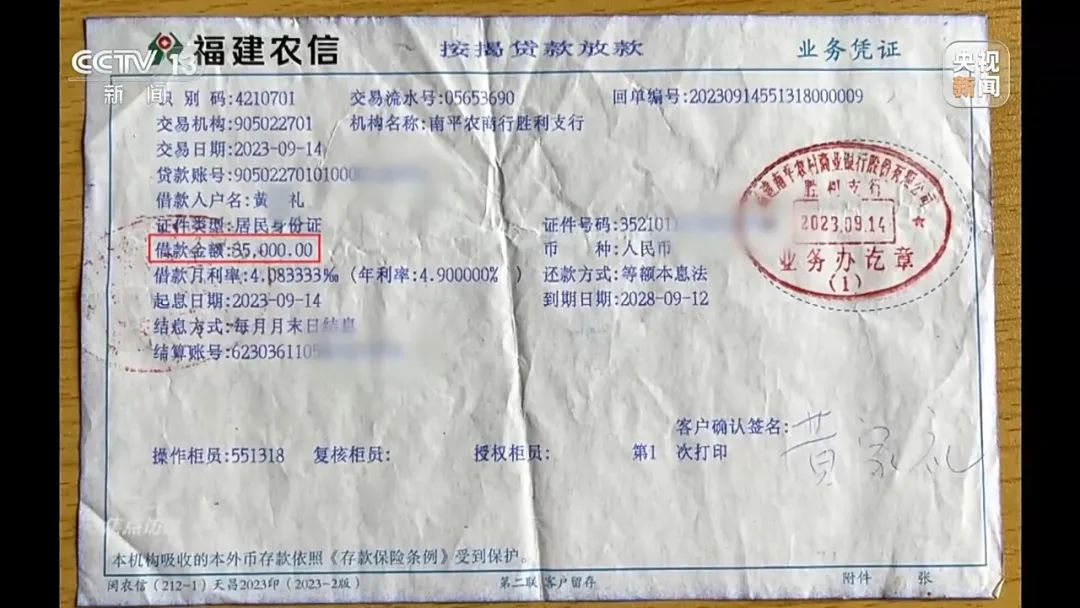 CCTV 13
新闻
福建农信 按揭贷款放款 业务凭证
央视
新闻
识 别 码:4210701 交易流水号:05653690 回单编号:20230914551318000009
交易机构:905022701 机构名称:南平农商行胜利支行
交易日期:2023-09-14
贷款账号:90502270101000
借款人户名:黄 礼
证件类型:居民身份证 证件号码:352101
借款金额:35,000.00 币 种:人民币
借款月利率:4.083333‰ (年利率:4.900000% ) 还款方式:等额本息法
起息日期:2023-09-14 到期日期:2028-09-12
结息方式:每月月末日结息
结算账号:6230361105
福建南平农村商业银行股份有限公司
胜利支行
2023.09.14
业务办讫章
(1)
客户确认签名:黄家礼
操作柜员:551318 复核柜员: 授权柜员: 第1 次打印
焦点访
本机构吸收的本外币存款依照《存款保险条例》受到保护。
闽农信(212-1)天昌2023印(2023-2版) 第二联 客户留存 附件 张